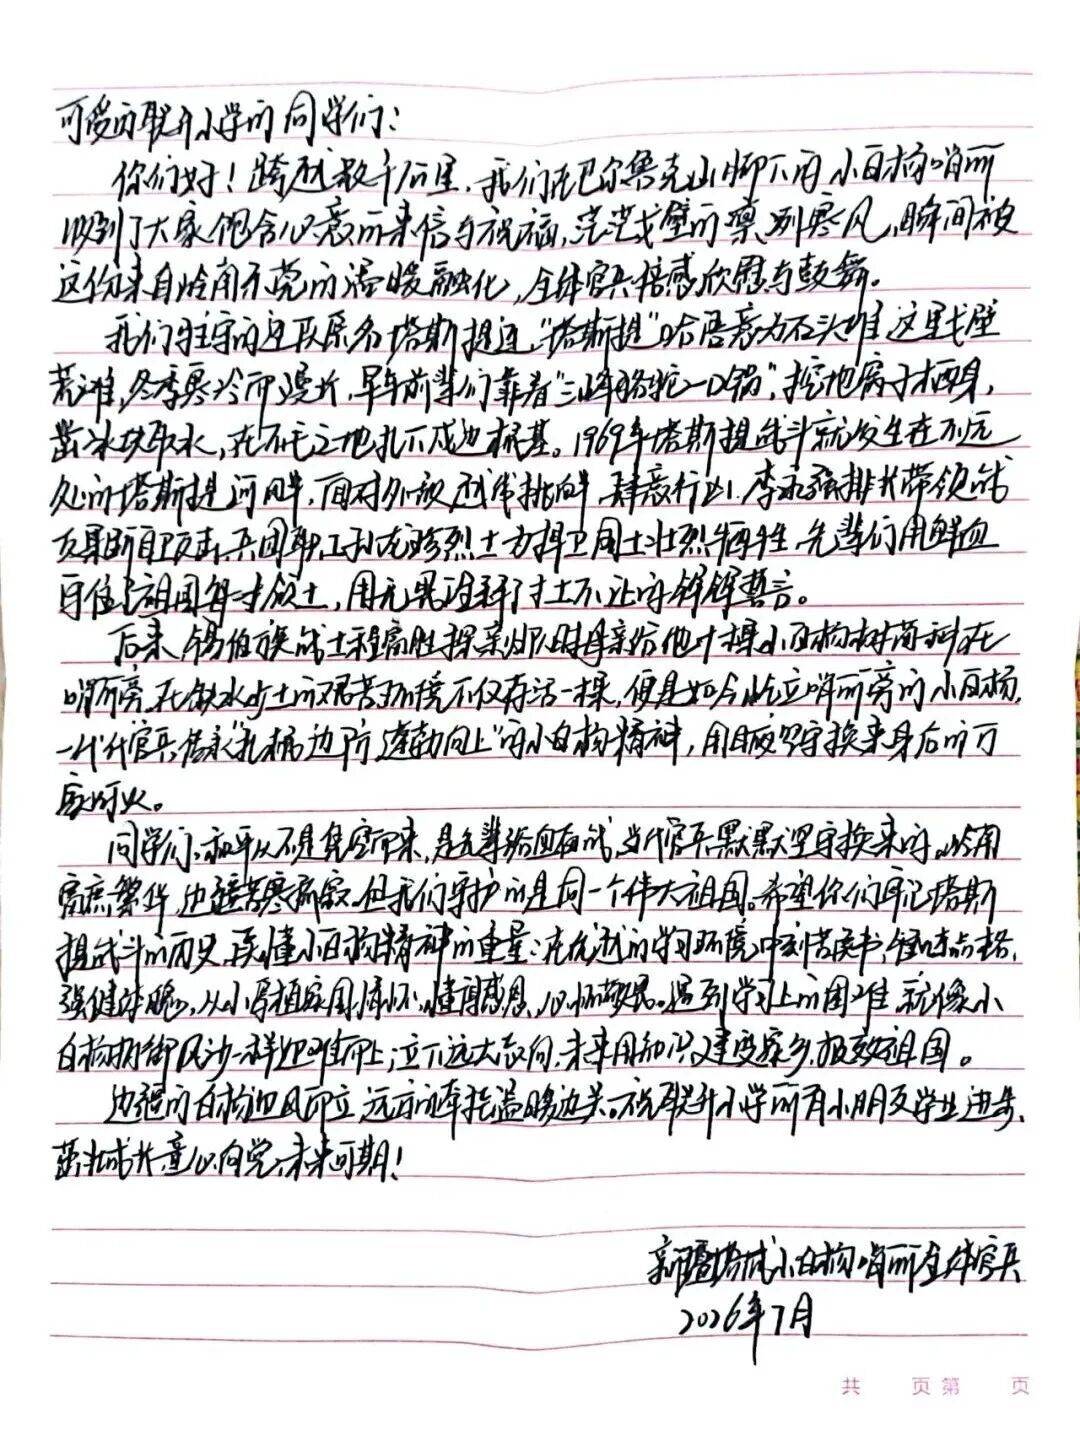 可爱的联升小学的同学们：
你们好！跨越数千公里，我们在巴尔鲁克山脚下的小白杨哨所
收到了大家饱含心意的来信与祝福，茫茫戈壁的凛冽寒风，瞬间被
这份来自岭南东莞的温暖融化，全体官兵倍感欣慰与鼓舞。
我们驻守的连队原名塔斯提连，“塔斯提”哈语意为石头滩 这里戈壁
荒滩，冬季寒冷而漫长，早年前辈们靠着“三峰骆驼一口锅”，挖地窝子栖身，
凿冰块取水，在不毛之地扎下戍边根基。1969年塔斯提战斗就发生在不远
处的塔斯提河畔，面对外敌越线挑衅，肆意行凶，李永强排长带领战
友果断自卫反击，兵团职工孙龙珍烈士为捍卫国土壮烈牺牲，先辈们用鲜血
守住了祖国每一寸领土，用无畏诠释了寸土不让的铮铮誓言。
后来 锡伯族战士程富胜探亲归队时母亲给他十棵小白杨树苗种在
哨所旁，在缺水少土的艰苦环境下仅存活一棵，便是如今屹立哨所旁的小白杨，
一代代官兵传承“扎根边防，蓬勃向上”的小白杨精神，用坚守换来身后的万
家灯火。
同学们，和平从不是凭空而来，是先辈浴血奋战，当代官兵默默坚守换来的。岭南
富庶繁华，边疆苦寒寂寥，但我们守护的是同一个伟大祖国。希望你们牢记塔斯
提战斗的历史，读懂小白杨精神的重量；在优越的学习环境中刻苦读书，锤炼品格，
强健体魄，从小厚植家国情怀，懂得感恩，心怀敬畏。遇到学习上的困难，就像小
白杨抵御风沙一样迎难而上；立下远大志向，未来用知识建设家乡，报效祖国。
边疆的白杨迎风而立，远方的牵挂温暖边关。祝联升小学所有小朋友学业进步，
茁壮成长，童心向党，未来可期！
新疆塔城小白杨哨所全体官兵
2026年7月
共 页 第 页